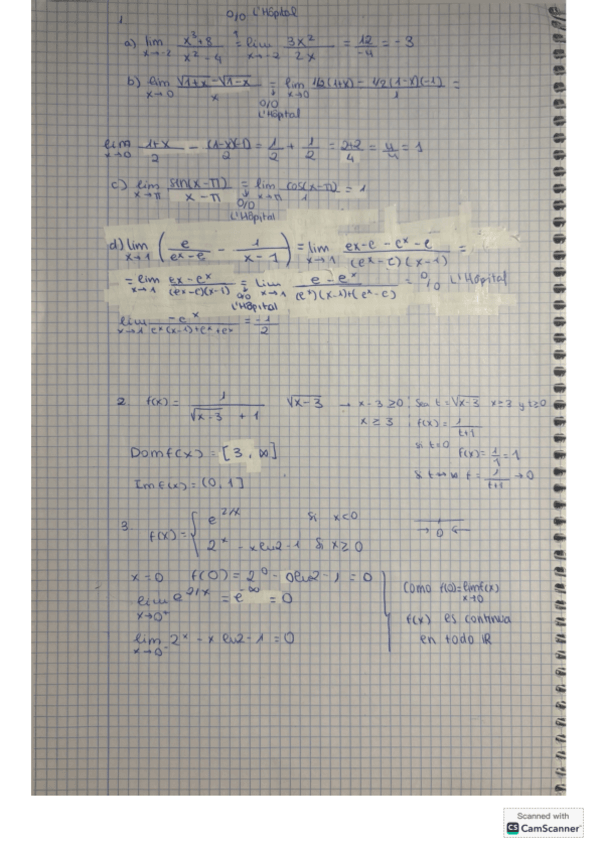 0/0 L'Hôpital
1
a) lim x→-2 x³+8 / x²-4 = lim x→-2 3x² / 2x = 12/-4 = -3
b) lim x→0 √1+x - √1-x / x = lim x→0 1/2(1+x) - 1/2(1-x)(-1) / 1 =
0/0
L'Hôpital
lim x→0 1+x / 2 - (1-x)(-1) / 2 = 1/2 + 1/2 = 2+2 / 4 = 4/4 = 1
c) lim x→π sin(x-π) / x-π = lim x→π cos(x-π) / 1 = 1
0/0
L'Hôpital
d) lim x→1 ( e / eˣ-e - 1 / x-1 ) = lim x→1 ex-e-eˣ-e / (eˣ-e)(x-1) =
= lim x→1 ex-eˣ / (eˣ-e)(x-1) = lim x→1 e-eˣ / (eˣ)(x-1)+(eˣ-e) = 0/0 L'Hôpital
0/0
L'Hôpital
lim x→1 -eˣ / eˣ(x-1)+eˣ+eˣ = -1/2
2. f(x) = 1 / √x-3 + 1 √x-3 → x-3≥0 ; Sea t=√x-3 x≥3 y t≥0
x≥3 ; f(x) = 1 / t+1
si t=0
f(x) = 1/1 = 1
Domf(x) = [3, ∞]
si t→∞ t = 1 / t+1 → 0
Imf(x) = (0, 1]
3. f(x) = { e^2/x si x<0
2ˣ - x ln2 - 1 si x≥0
→ 0 ←
x=0 f(0) = 2⁰ - 0ln2 - 1 = 0
Como f(0)=limf(x) x→0
lim x→0⁺ e^2/x = e^-∞ = 0
f(x) es continua
en todo IR
lim x→0⁻ 2ˣ - x ln2 - 1 = 0
Scanned with
CS CamScanner